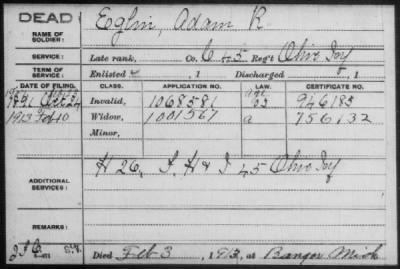 DEAD
Eglin, Adam R.
NAME OF
SOLDIER:
SERVICE: Late rank, Co. C 45 Reg't Ohio Inf
TERM OF
SERVICE: Enlisted , 1 Discharged , 1
DATE OF FILING. CLASS. APPLICATION NO. LAW. CERTIFICATE NO.
1891 Oct 24 Invalid, 1068581 946185
1913 Feb 10 Widow, 1001567 a 756132
Minor,
ADDITIONAL
SERVICES: H 26, I, H & I 45 Ohio Inf
REMARKS:
Died Feb 3, 1913, at Bangor Mich